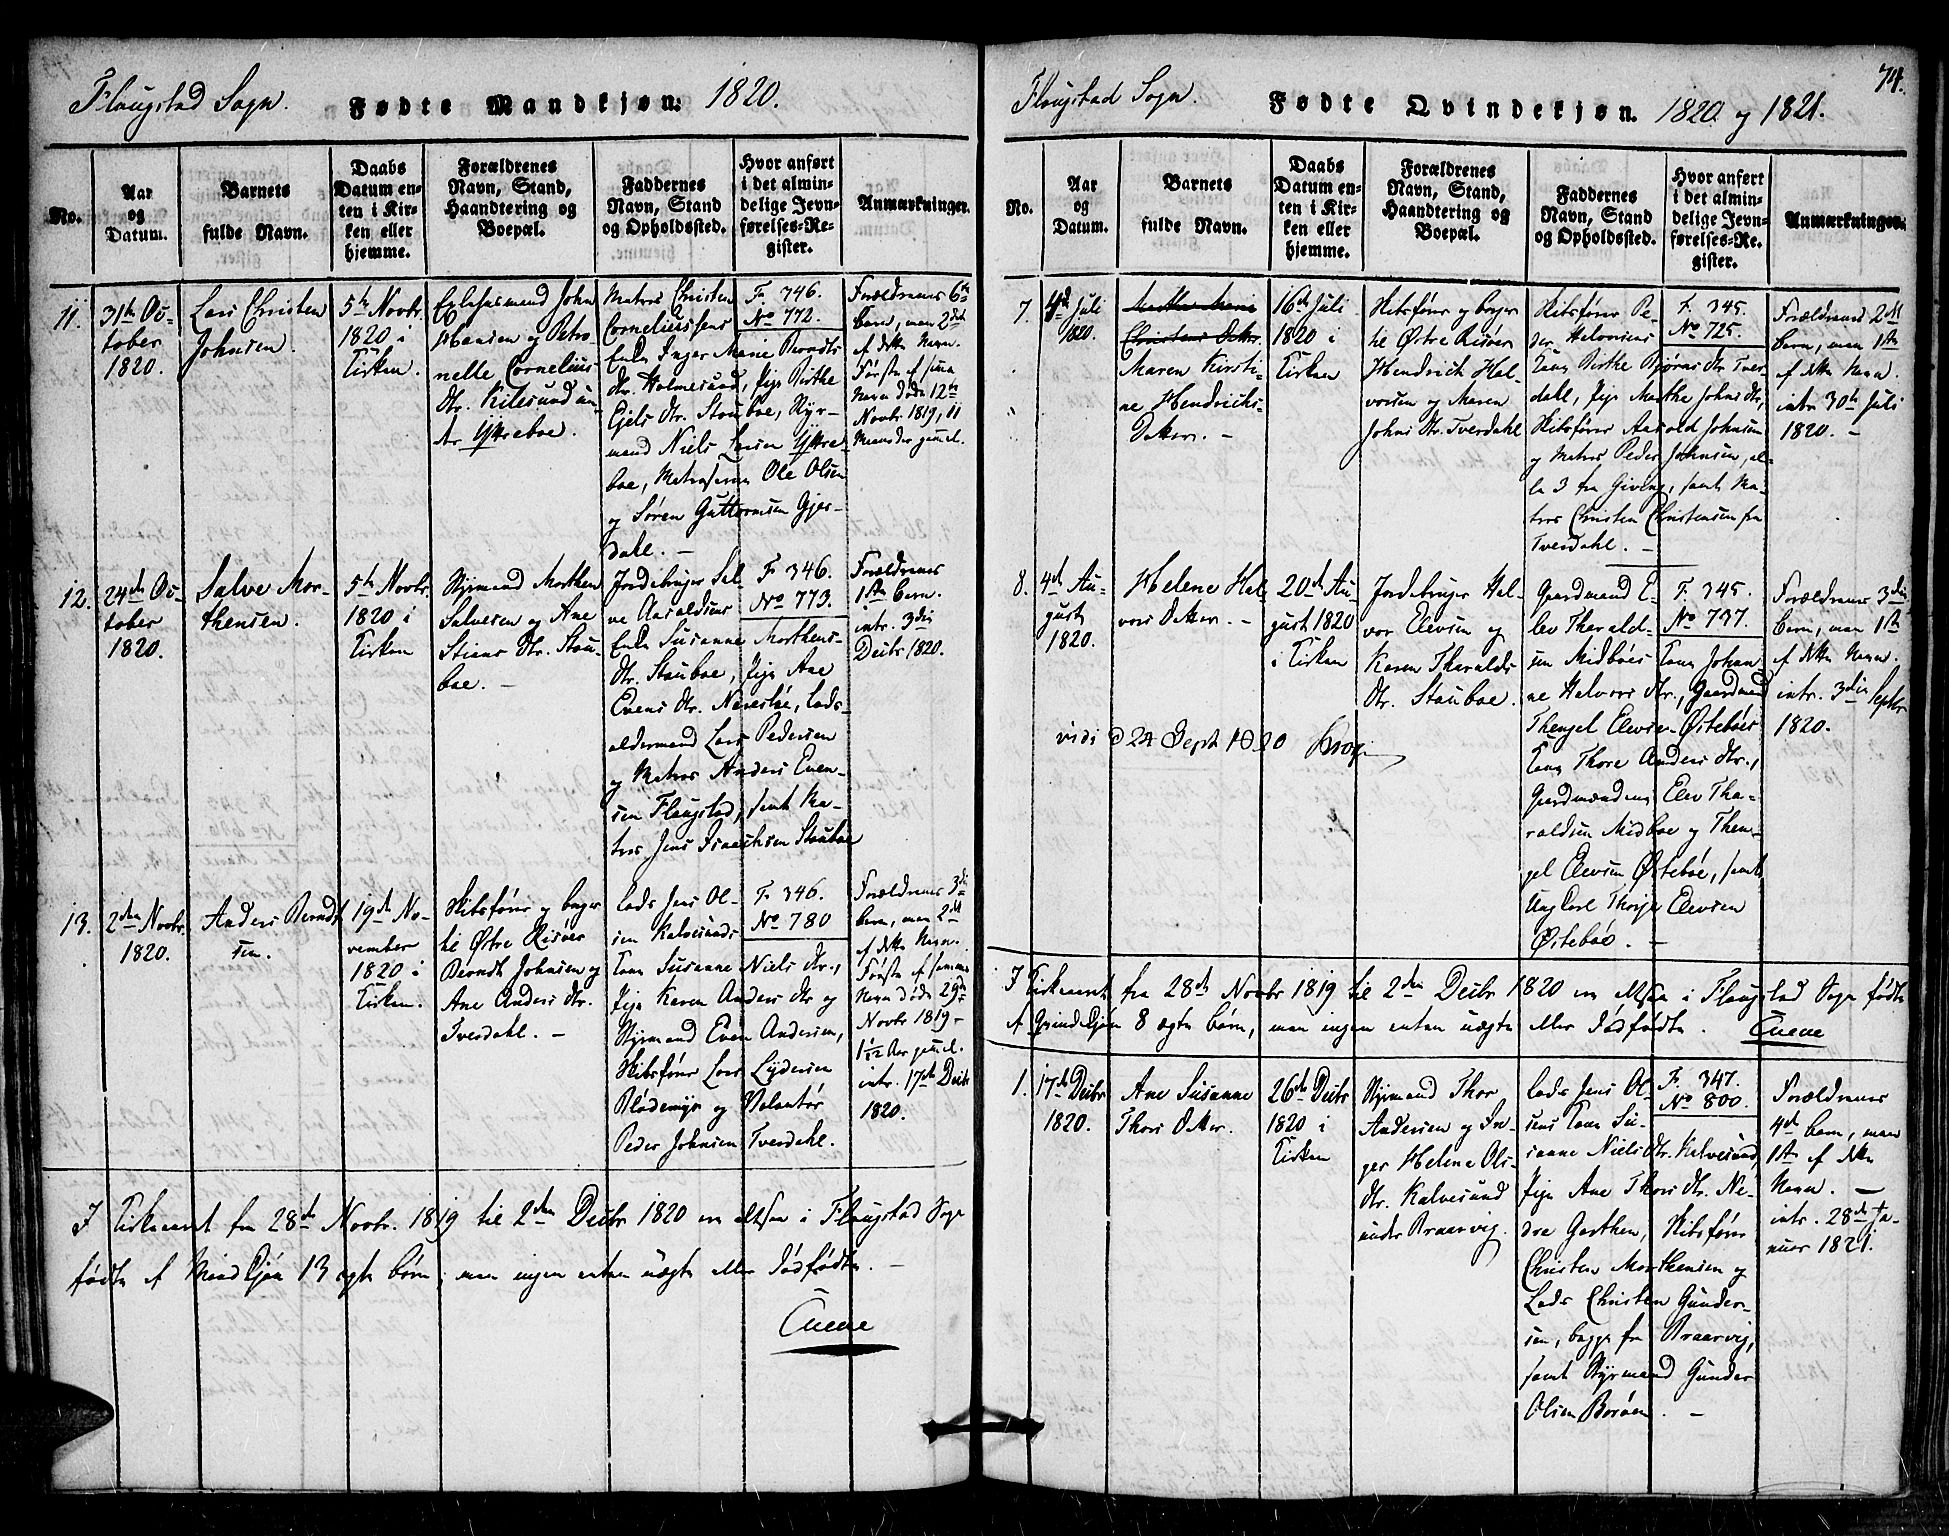 Flaugstad Sogn. Fødte Mandkjøn. 1820.
No.
Aar
og
Datum.
Barnets
fulde Navn.
Daabs
Datum en-
ten i Kir-
ken eller
hjemme.
Forældrenes
Navn, Stand,
Haandtering og
Boepæl.
Faddernes
Navn, Stand
og Opholdssted.
Hvor anført
i det almin-
delige Jevn-
førelses-Re-
gister.
Anmærkninger.
11.
31te Oc-
tober
1820.
Lars Christen
Johnsen.
5te Novbr.
1820 i
Kirken.
John
Hansen og Petro-
nelle Cornelius
Dtr. Kilesund
Yttreboe.
Matros Christen
Corneliussens
Enke Inger Marie Berndts
Dtr. Holmesund, Pige Birthe
Ejels Dtr. Stauboe, Styr-
mand Niels Larsen Yttre-
boe, Matroserne Ole Olsen
og Søren Guttormsen Gjer-
dahl. —
F. 346.
No 772.
Forældrenes 6te
barn, men 2det
af dette Navn.
Første af samme
Navn døde 12te
Novbr 1819, 11
Maaneder gammel.
12.
24de Oc-
tober
1820.
Salve Mor-
thensen.
5te Novbr.
1820 i
Kirken
Styrmand Morthen
Salvesen og Ane
Stians Dtr. Stau-
boe. —
Jordebruger Sal-
ve Aasoldsens
Enke Susanne Morthens-
Dtr. Stauboe, Pige Ane
Evens Dtr. Naresløe, Lods-
oldermand Lars Pedersen
og Matros Anders Even-
sen Flaugstad, samt Ma-
tros Jens Isaachsen Stauboe
F. 346.
No 773.
Forældrenes
1ste barn.
intr. 3die
Decbr 1820.
13.
2den Novbr.
1820.
Anders Berndt
sen.
19de No-
vember
1820 i
Kirken.
Skibsfører og borger
til Østre Risøer
Berndt Johnsen og
Ane Anders Dtr.
Tverdahl. —
Lods Jens Ol-
sen Kalvesunds
Kone Susanne Niels Dtr.,
Pige Karen Anders Dtr og
Styrmand Even Andersen,
Skibsfører Lars Lydersen
Blødemyr og Volontør
Peder Johnsen Tverdahl.
F. 346.
No 780
Forældrenes 3die
barn, men 2det
af dette Navn.
Første af samme
Navn døde 29de
Novbr 1819 -
1 1/12 Aar gammel.
intr. 17de Decbr
1820.
I Kirkeaaret fra 28de Novbr. 1819 til 2den Decbr 1820 er altsaa i Flaugstad Sogn
fødte af Mandkjøn 13 ægte børn, men ingen enten uægte eller dødfødte. —
Cuene
74.
Flaugstad Sogn. Fødte Qvindekjøn. 1820 og 1821.
No.
Aar
og
Datum.
Barnets
fulde Navn.
Daabs
Datum en-
ten i Kir-
ken eller
hjemme.
Forældrenes
Navn, Stand,
Haandtering og
Boepæl.
Faddernes
Navn, Stand
og Opholdssted.
Hvor anført
i det almin-
delige Jevn-
førelses-Re-
gister.
Anmærkninger.
7.
4de Juli
1820.
Maren Kirsti-
ne Hendrichs-
Datter. —
16de Juli
1820 i
Kirken
Skibsfører og borger
til Østre Risøer
Hendrich Hal-
vorsen og Maren
Johns Dtr. Tverdahl
Skibsfører Pe-
der Halvorsens
Kone Birthe Bjørns Dtr Tver-
dahl, Pige Marthe Johns Dtr,
Skibsfører Aasold Johnsen
og Matros Peder Johnsen, al-
le 3 fra Giving, samt Ma-
tros Christen Christensen fra
Tverdahl. —
F. 345.
No 725.
Forældrenes 2det
barn, men 1ste
af dette Navn.
intr 30te Juli
1820. —
8.
4de Au-
gust
1820.
Helene Hal-
vors Datter. —
20de Au-
gust 1820
i Kirken
Jordebruger Hal-
vor Elevsen og
Karen Tharalds
Dtr. Stauboe.
Gaardmand E-
lev Tharald-
sen Midboes Kone Johan-
ne Halvors Dtr., Gaardmand
Thengel Elevsen Østebøes
Kone Thore Anders Dtr.,
Gaardmændene Elev Tha-
raldsen Midboe og Then-
gel Elevsen Østebøe, samt
Ungkarl Thorje Elevsen
Østebøe. —
F. 345.
No 737.
Forældrenes 3die
barn, men 1ste
af dette Navn.
intr. 3die Septbr
1820.
vidi d 24 Sept 1820
I Kirkeaaret fra 28de Novbr 1819 til 2den Decbr 1820 er altsaa i Flaugstad Sogn fødte
af Qvindekjøn 8 ægte børn, men ingen enten uægte eller dødfødte. Cuene
1.
17de Decbr
1820.
Ane Susanne
Thors Datter.
26de Decbr
1820 i
Kirken
Styrmand Thor
Andersen og In-
ger Helene Ols-
Dtr. Kalvesund
under Braarvig.
Lods Jens Ol-
sens Kone Su-
sanne Niels Dtr. Kalvesund,
Pige Ane Thors Dtr. Ne-
dre Garthen, Skibsfører
Christen Morthensen og
Lods Christen Gunder-
sen, begge fra Braarvig,
samt Styrmand Gunder
Olsen Borøen. —
F. 347.
No 800.
Forældrenes
4de barn, men
1ste af dette
Navn. —
intr. 28de Ja-
nuar 1821.